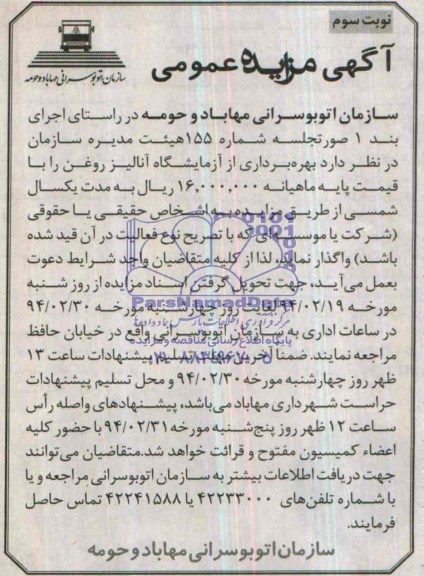 نوبت سوم
آگهی مزایده عمومی
سازمان اتوبوسرانی مهاباد و حومه
سازمان اتوبوسرانی مهاباد و حومه در راستای اجرای
بند ۱ صورتجلسه شماره ۱۵۵ هیئت مدیره سازمان
در نظر دارد بهره‌برداری از آزمایشگاه آنالیز روغن را با
قیمت پایه ماهیانه ۱۶,۰۰۰,۰۰۰ ریال به مدت یکسال
شمسی از طریق مزایده به اشخاص حقیقی یا حقوقی
(شرکت یا موسسه‌ای که با تصریح نوع فعالیت در آن قید شده
باشد) واگذار نماید، لذا از کلیه متقاضیان واجد شرایط دعوت
بعمل می‌آید، جهت تحویل گرفتن اسناد مزایده از روز شنبه
مورخه ۹۴/۰۲/۱۹ لغایت روز چهارشنبه مورخه ۹۴/۰۲/۳۰
ParsNamadData
در ساعات اداری به سازمان اتوبوسرانی واقع در خیابان حافظ
پایگاه اطلاع رسانی مناقصه و مزایده
مراجعه نمایند. ضمنا آخرین مهلت تسلیم پیشنهادات ساعت ۱۳
ظهر روز چهارشنبه مورخه ۹۴/۰۲/۳۰ و محل تسلیم پیشنهادات
حراست شهرداری مهاباد می‌باشد، پیشنهادهای واصله رأس
ساعت ۱۲ ظهر روز پنج‌شنبه مورخه ۹۴/۰۲/۳۱ با حضور کلیه
اعضاء کمیسیون مفتوح و قرائت خواهد شد. متقاضیان می‌توانند
جهت دریافت اطلاعات بیشتر به سازمان اتوبوسرانی مراجعه و یا
با شماره تلفن‌های ۴۲۲۳۳۰۰۰ یا ۴۲۲۴۱۵۸۸ تماس حاصل
فرمایند.
سازمان اتوبوسرانی مهاباد و حومه